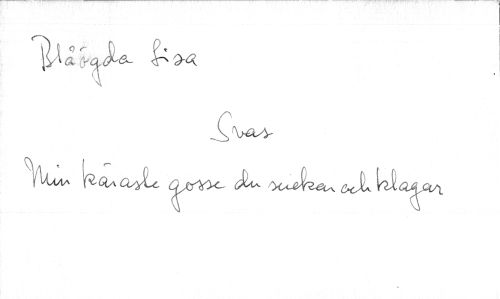 Blåögda Lisa
Svar
Min käraste gosse du suckar och klagar